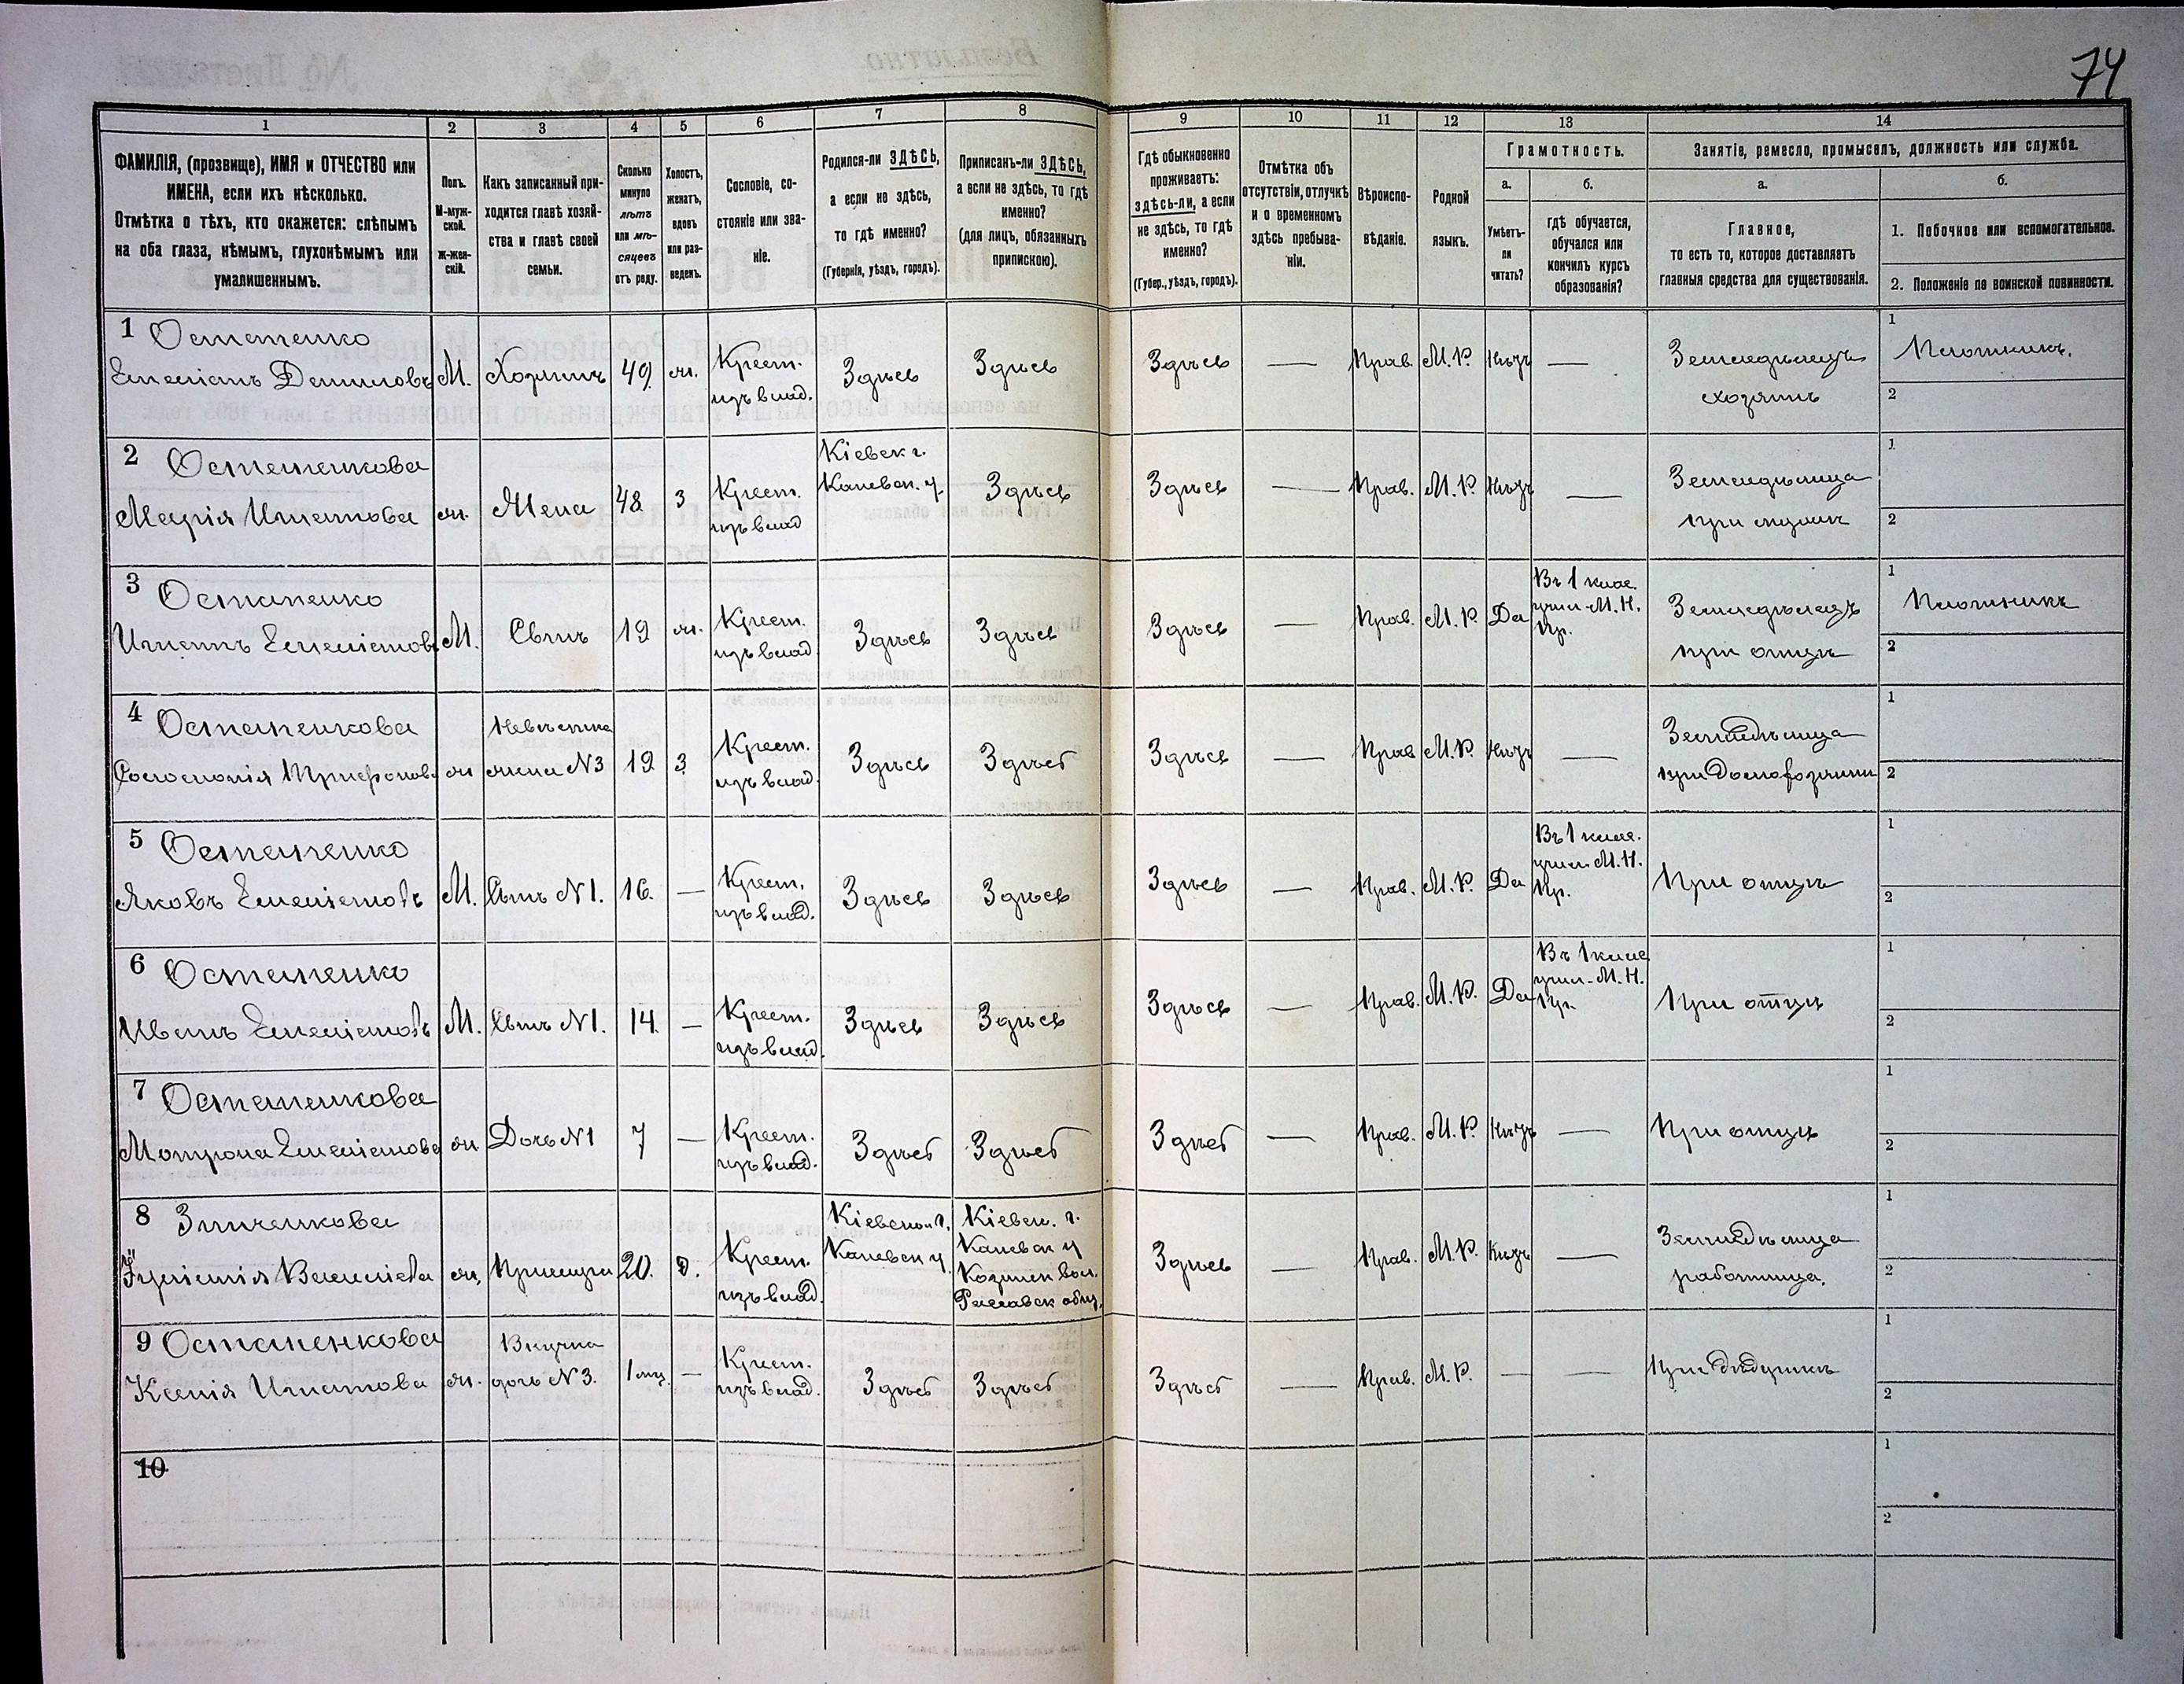 74
1 2 3 4 5 6 7 8 9 10 11 12 13 14
ФАМИЛІЯ, (прозвище), ИМЯ и ОТЧЕСТВО или
ИМЕНА, если ихъ нѣсколько.
Отмѣтка о тѣхъ, кто окажется: слѣпымъ
на оба глаза, нѣмымъ, глухонѣмымъ или
умалишеннымъ.
Полъ.
М-муж-
ской.
Ж-жен-
скій.
Какъ записанный при-
ходится главѣ хозяй-
ства и главѣ своей
семьи.
Сколько
минуло
лѣтъ
или мѣ-
сяцевъ
отъ роду.
Холостъ,
женатъ,
вдовъ
или раз-
веденъ.
Сословіе, со-
стояніе или зва-
ніе.
Родился-ли ЗДѢСЬ,
а если не здѣсь,
то гдѣ именно?
(Губернія, уѣздъ, городъ).
Приписанъ-ли ЗДѢСЬ,
а если не здѣсь, то гдѣ
именно?
(для лицъ, обязанныхъ
припискою).
Гдѣ обыкновенно
проживаетъ:
здѣсь-ли, а если
не здѣсь, то гдѣ
именно?
(Губер., уѣздъ, городъ).
Отмѣтка объ
отсутствіи, отлучкѣ
и о временномъ
здѣсь пребыва-
ніи.
Вѣроиспо-
вѣданіе.
Родной
языкъ.
Грамотность.
а.
Умѣетъ-
ли
читать?
б.
гдѣ обучается,
обучался или
кончилъ курсъ
образованія?
Занятіе, ремесло, промыселъ, должность или служба.
а.
Главное,
то есть то, которое доставляетъ
главныя средства для существованія.
б.
1. Побочное или вспомогательное.
2. Положеніе по воинской повинности.
1 Остапенко
Емеліанъ Даниловъ М. Хозяинъ 49 ж. Крест.
изъ влад. Здѣсь Здѣсь Здѣсь — Прав. М.Р. Нѣтъ — Земледѣлецъ
хозяинъ
1 Плотникъ.
2
2 Остапенкова
Марія Игнатова ж. Жена 48 з Крест.
изъ влад Кіевск г.
Каневск. у. Здѣсь Здѣсь — Прав. М.Р. Нѣтъ — Земледѣлица
при мужѣ
1
2
3 Остапенко
Игнатъ Емеліановъ М. Сынъ 19 ж. Крест.
изъ влад. Здѣсь Здѣсь Здѣсь — Прав. М.Р. Да Въ 1 клас.
учил. М.Н.
Пр. Земледѣлецъ
при отцѣ
1 Плотникъ
2
4 Остапенкова
Трифонова ж Невѣстка
жена N3 19 з Крест.
изъ влад. Здѣсь Здѣсь Здѣсь — Прав М.Р. Нѣтъ — Земледѣлица
при домохозяинѣ
1
2
5 Остапенко
Яковъ Емеліановъ М. Сынъ N1. 16. — Крест.
изъ влад. Здѣсь Здѣсь Здѣсь — Прав. М.Р. Да Въ 1 клас.
учил. М.Н.
Пр. При отцѣ
1
2
6 Остапенко
Иванъ Емеліановъ М. Сынъ N1. 14. — Крест.
изъ влад. Здѣсь Здѣсь Здѣсь — Прав. М.Р. Да Въ 1 клас
учил. М.Н.
Пр. При отцѣ
1
2
7 Остапенкова
Мотрона Емеліанова ж Дочь N1 7 — Крест.
изъ влад. Здѣсь Здѣсь Здѣсь — Прав. М.Р. Нѣтъ — При отцѣ
1
2
8 Зинченкова
ж. Прислуга 20. д. Крест.
изъ влад. Кіевской г.
Каневск у. Кіевск. г.
Каневск у
Козинск вол.
общ. Здѣсь Прав. М.Р. Нѣтъ — Земледѣлица
работница.
1
2
9 Остапенкова
Ксенія Игнатова ж. Внучка
дочь N3. 1 мѣс. — Крест.
изъ влад. Здѣсь Здѣсь Здѣсь — Прав. М.Р. — — При дѣдушкѣ
1
2
10
1
2